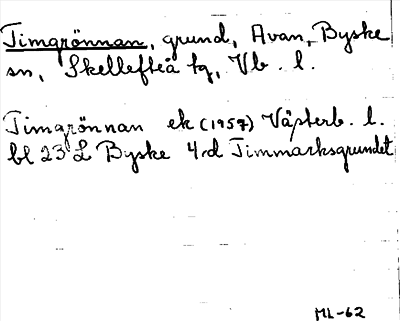 Timgrönnan, grund, Avan, Byske
sn, Skellefteå tg, Vb. l.
Timgrönnan ek (1957) Västerb. l.
bl 23 L Byske 4d Timmarksgrundet
ML-62